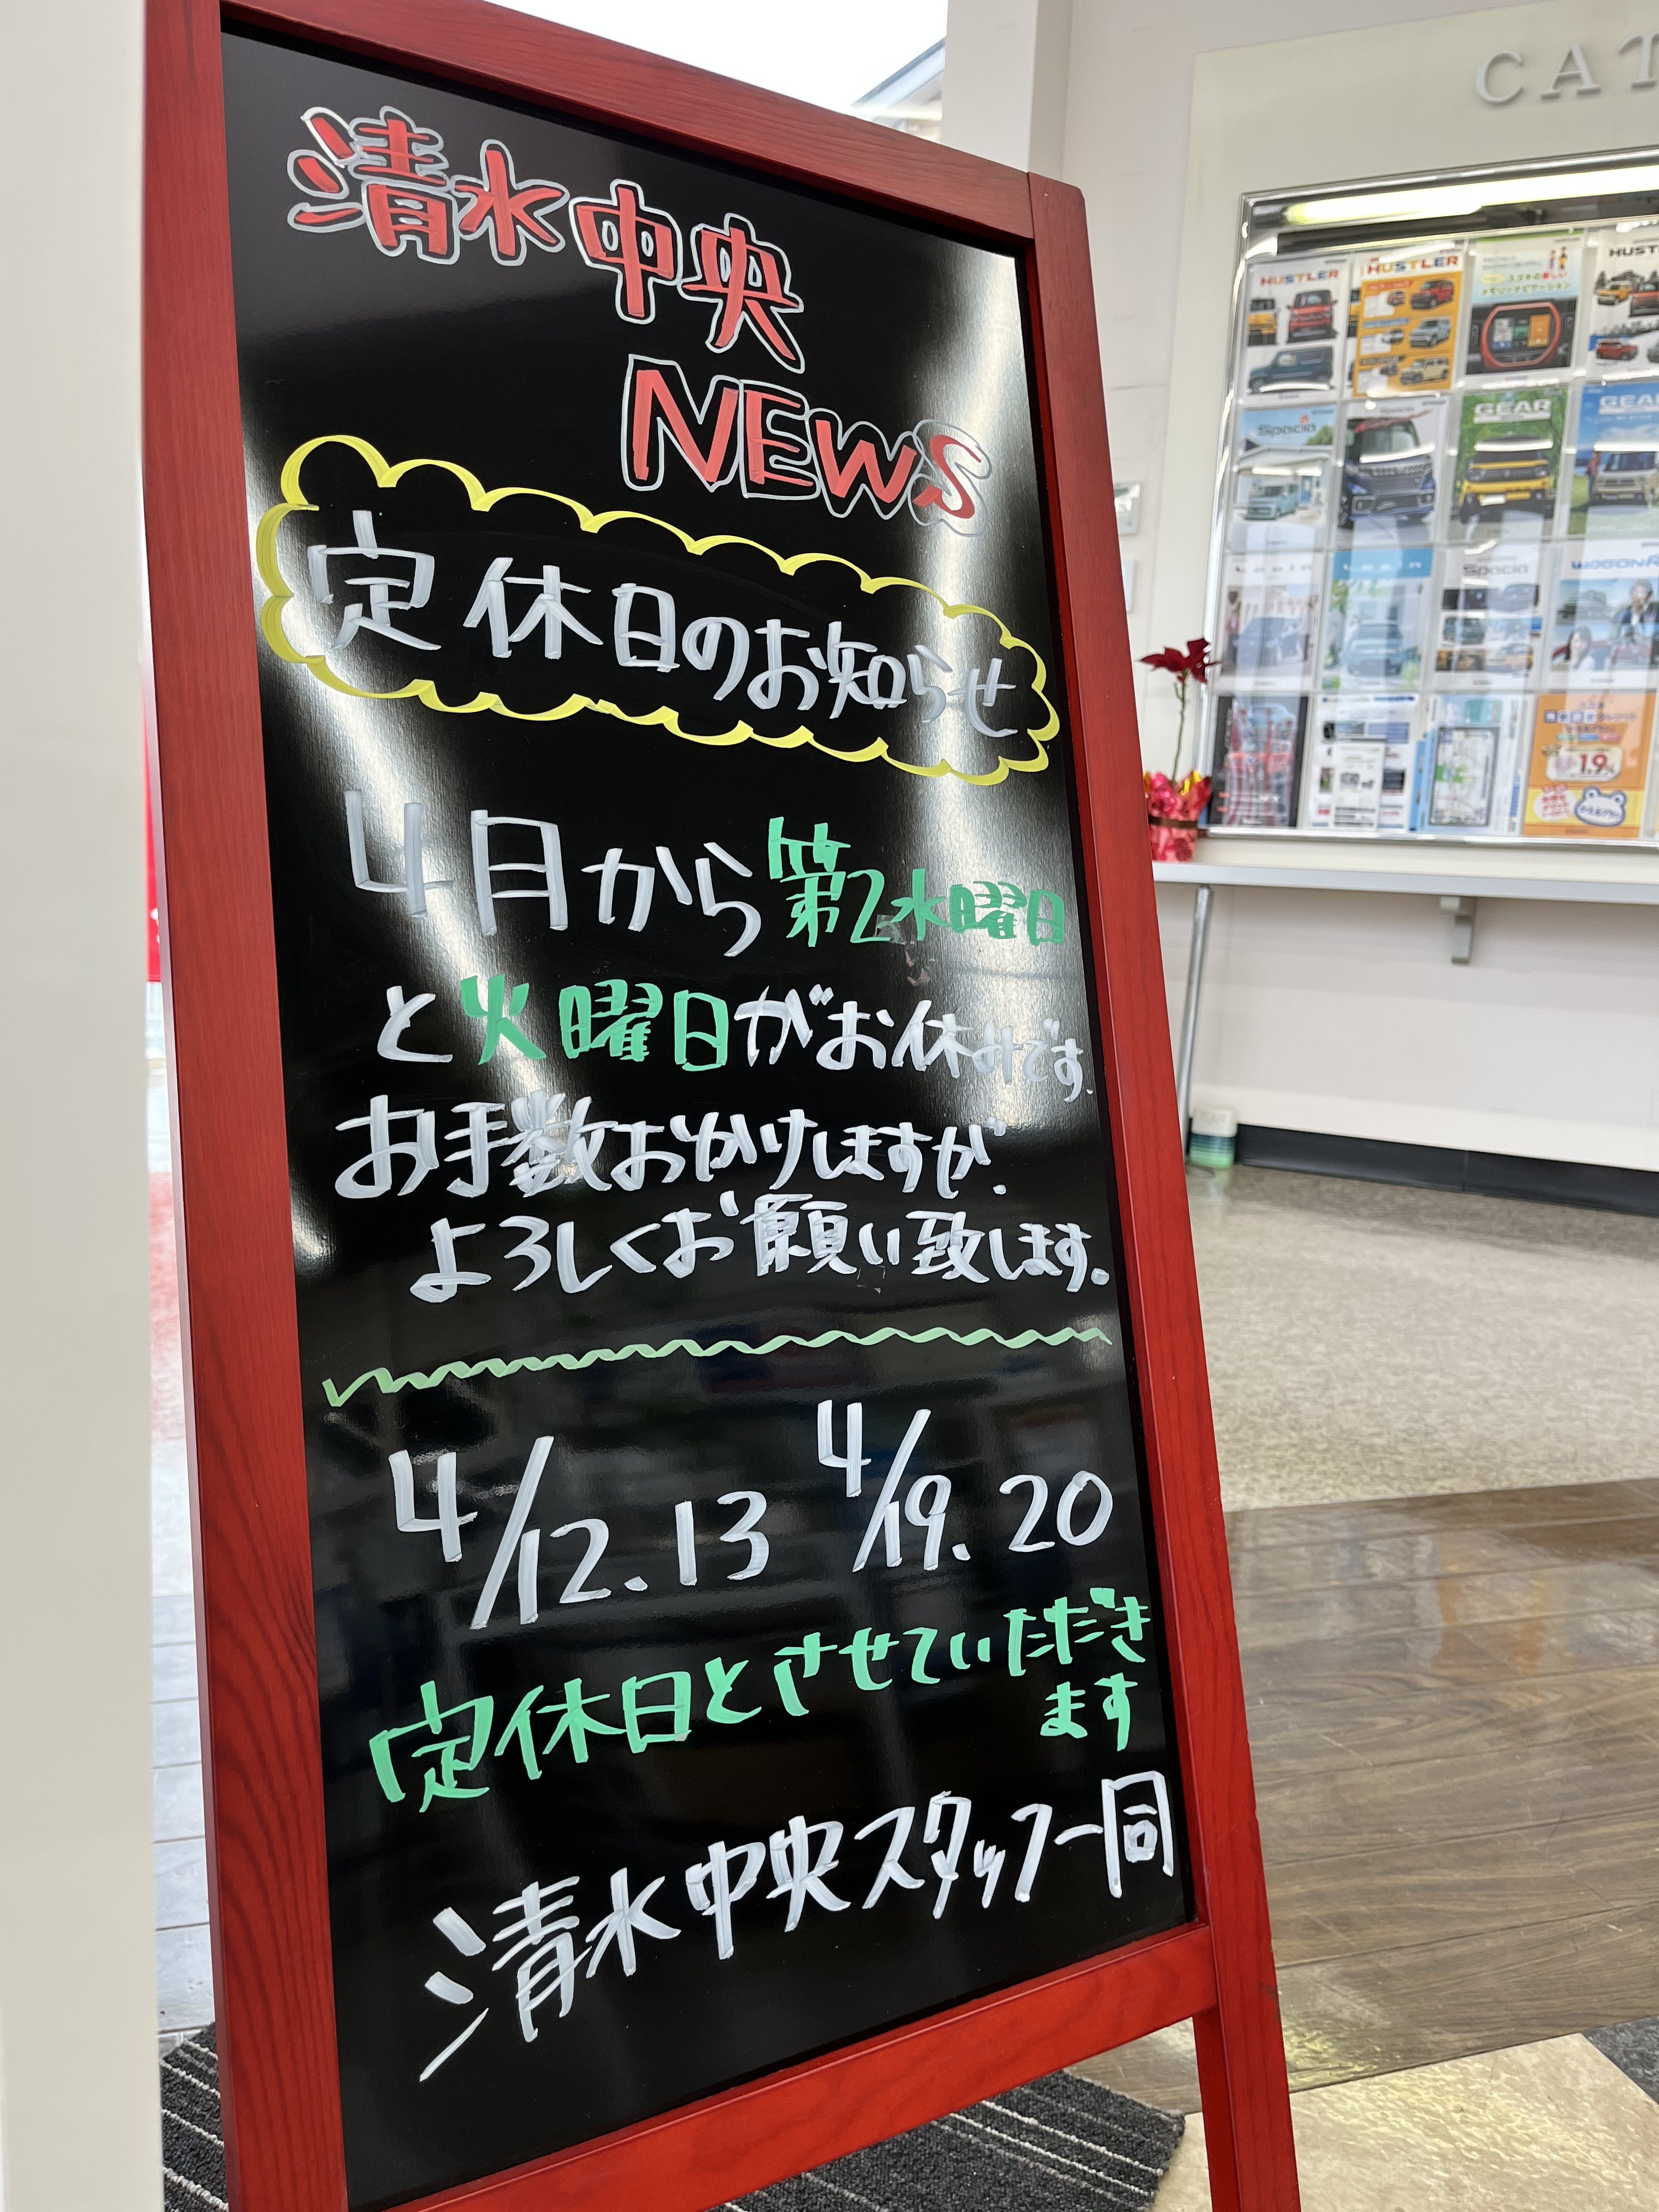 清水中央
NEWS
定休日のお知らせ
4月から第2水曜日
と火曜日がお休みです.
お手数おかけしますが.
よろしくお願い致します。
4/12.13 4/19.20
定休日とさせていただき
ます
清水中央スタッフ一同
CAT
HUSTLER
HUSTLER
HUST
Spacia
GEAR
GEAR
Spacia
WAGONR
1.9%